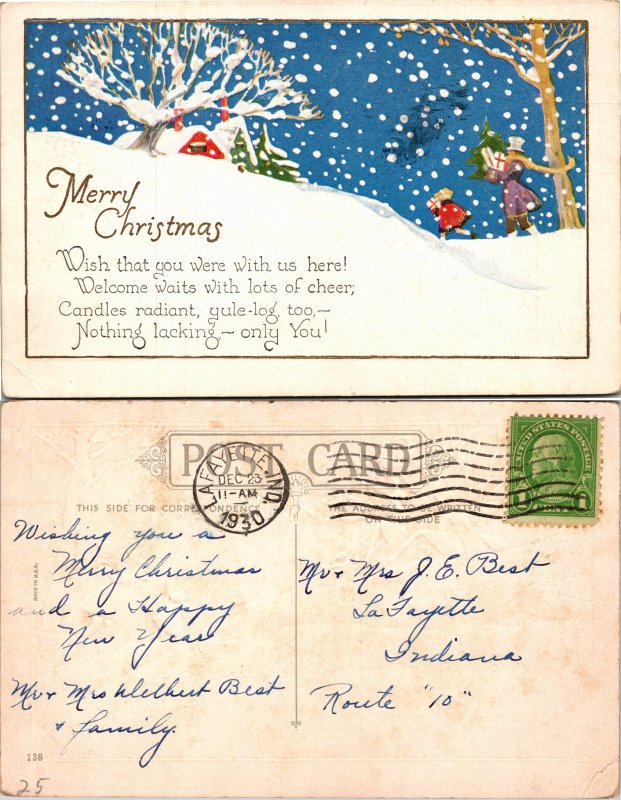 Merry
Christmas
Wish that you were with us here!
Welcome waits with lots of cheer;
Candles radiant, yule-log, too,—
Nothing lacking,— only You!
POST CARD
THIS SIDE FOR CORRESPONDENCE
THE ADDRESS TO BE WRITTEN
ON THIS SIDE
LAFAYETTE, IND.
DEC 23
11-AM
1930
UNITED STATES POSTAGE
1 1
MADE IN U.S.A.
Wishing you a
Merry Christmas
and a Happy
New Year
Mr & Mrs Delbert Best
& family.
Mr & Mrs J. E. Best
LaFayette
Indiana
Route "10"
138
25